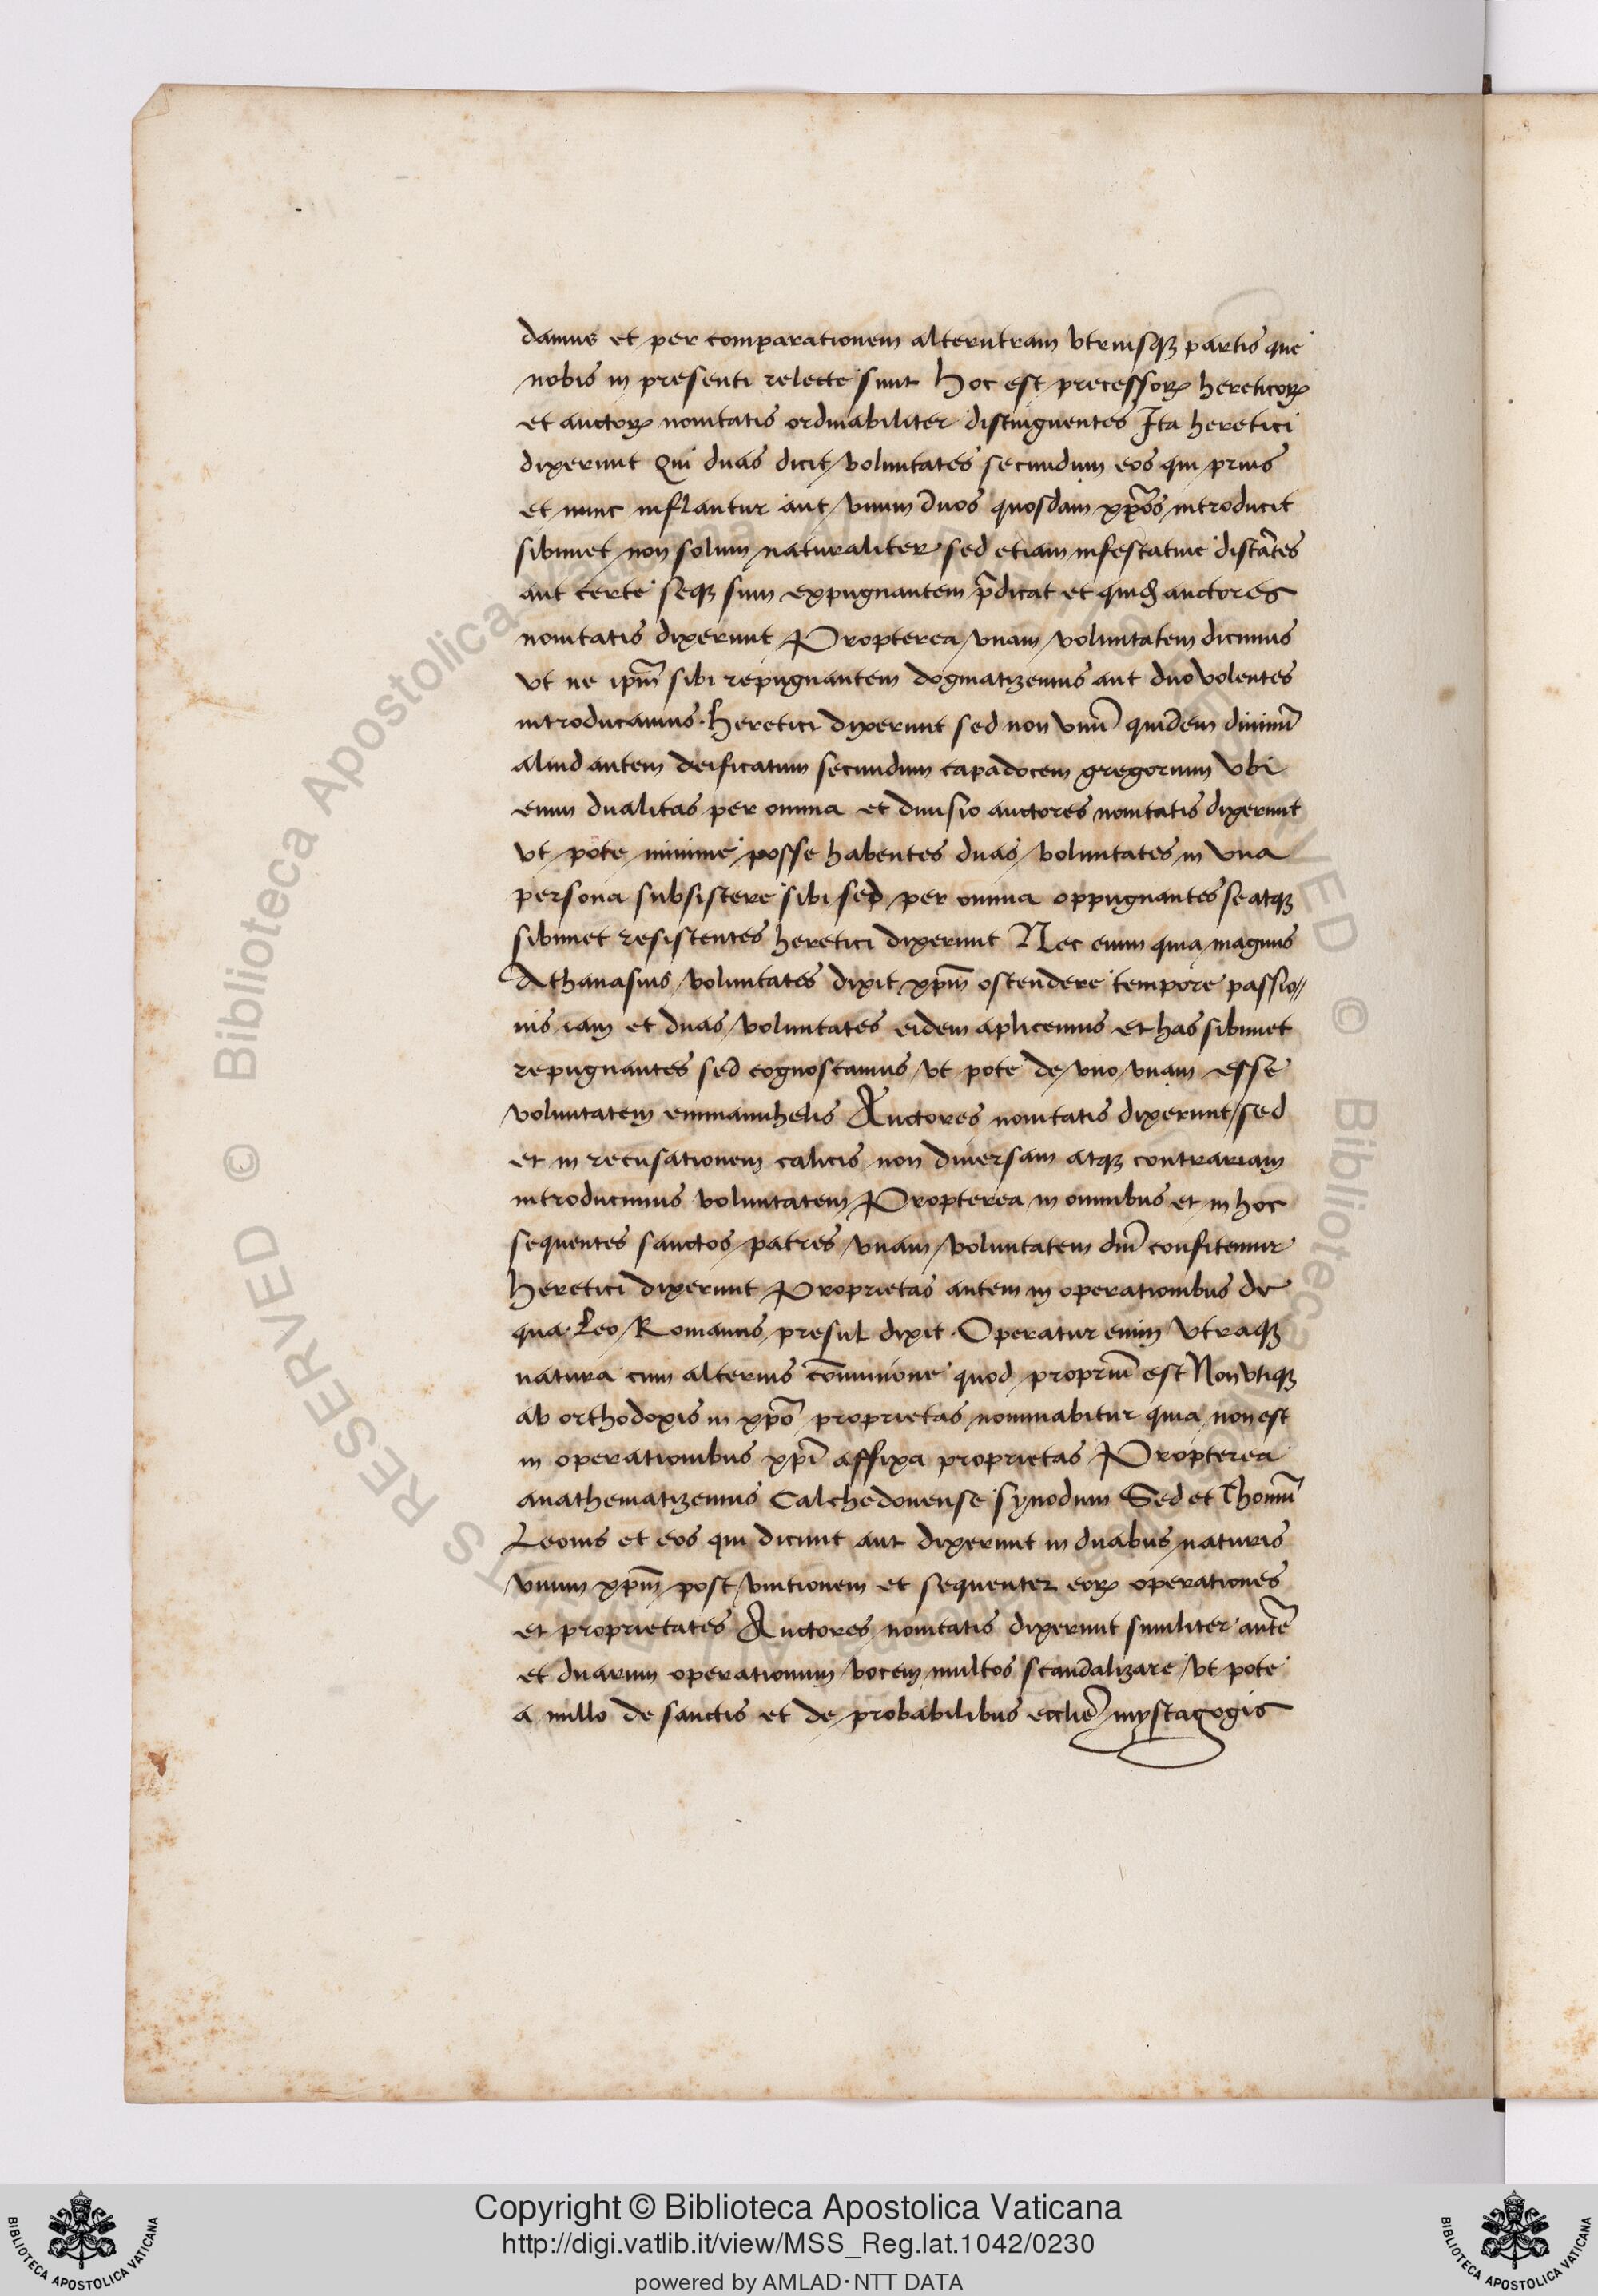 damus et per comparationem alterutram vtriusqꝫ partis que
nobis in presenti relecte sunt hoc est precessoꝝ hereticoꝝ
et auctoꝝ nouitatis ordinabiliter distinguentes Ita heretici
dixerunt Qui duas dicit voluntates secundum eos qui prius
et nunc inflantur aut vnum duos quosdam xp̄os introducit
sibimet non solum naturaliter sed etiam infestatiue distātes
aut certe seqꝫ sum expugnantem p̄dicat et auctores
nouitatis dixerunt Propterea vnam voluntatem dicimus
vt ne ip̄m sibi repugnantem dogmatizemus aut duo volentes
introducamus. heretici dixerunt sed non vnū quidem diuinū
aliud autem deificatum secundum capadocem gregorium vbi
enim dualitas per omnia et diuisio auctores nouitatis dixerunt
vt pote minime posse habentes duas voluntates in vna
persona subsistere sibi sed per omnia oppugnantes se atqꝫ
sibimet resistentes heretici dixerunt Nec enim quia magnus
Athanasius voluntates dixit xp̄m ostendere tempore passio//
nis iam et duas voluntates eidem aplicemus et has sibimet
repugnantes sed cognoscamus vt pote de vno vnam esse
voluntatem emmanuhelis Auctores nouitatis dixerunt/sed
et in recusationem calicis non diuersam atqꝫ contrariam
introducimus voluntatem Propterea in omnibus et in hoc
sequentes sanctos patres vnam voluntatem dn̄i confitemur
heretici dixerunt Proprietas autem in operationibus de
qua. Leo Romanus presul dixit. Operatur enim vtraqꝫ
natura cum alterius cōmunione quod propriū est Non vtiqꝫ
ab orthodoxis in xp̄o proprietas nominabitur quia non est
in operationibus xp̄i affixa proprietas Propterea
anathematizemus Calchedonense synodum Sed et Thomū
Leonis et eos qui dicunt aut dixerunt in duabus naturis
vnum xp̄m post vnitionem et sequenter eoꝝ operationes
et proprietates Auctores nouitatis dixerunt similiter autē
et duarum operationum vocem multos scandalizare vt pote
a nullo de sanctis et de probabilibus ecclīe mystagogis
Copyright © Biblioteca Apostolica Vaticana
http://digi.vatlib.it/view/MSS_Reg.lat.1042/0230
powered by AMLAD·NTT DATA